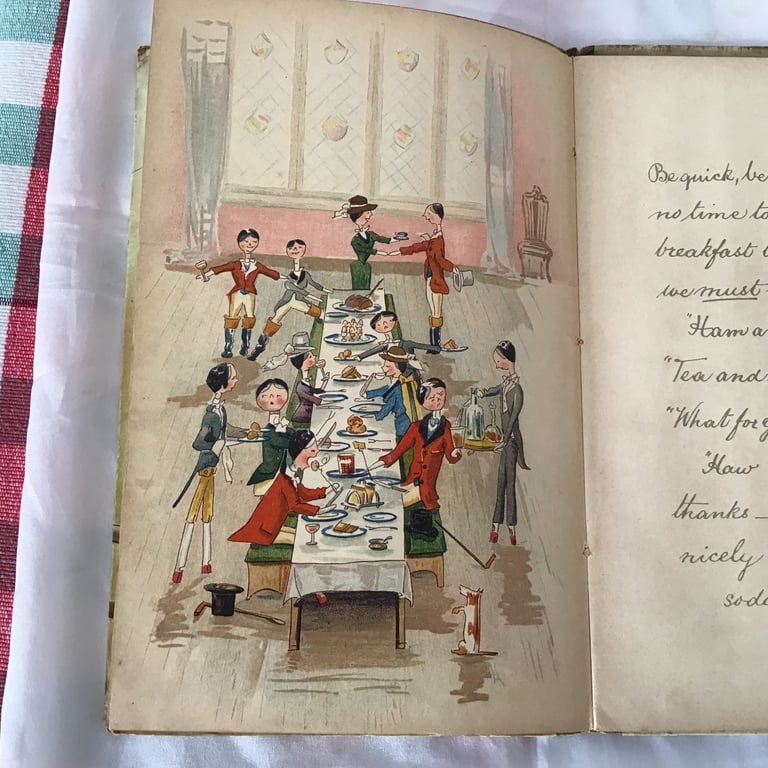 Be quick, be
no time to
breakfast
we must
"Ham a
"Tea and
"What for
"Haw
thanks —
nicely
soda